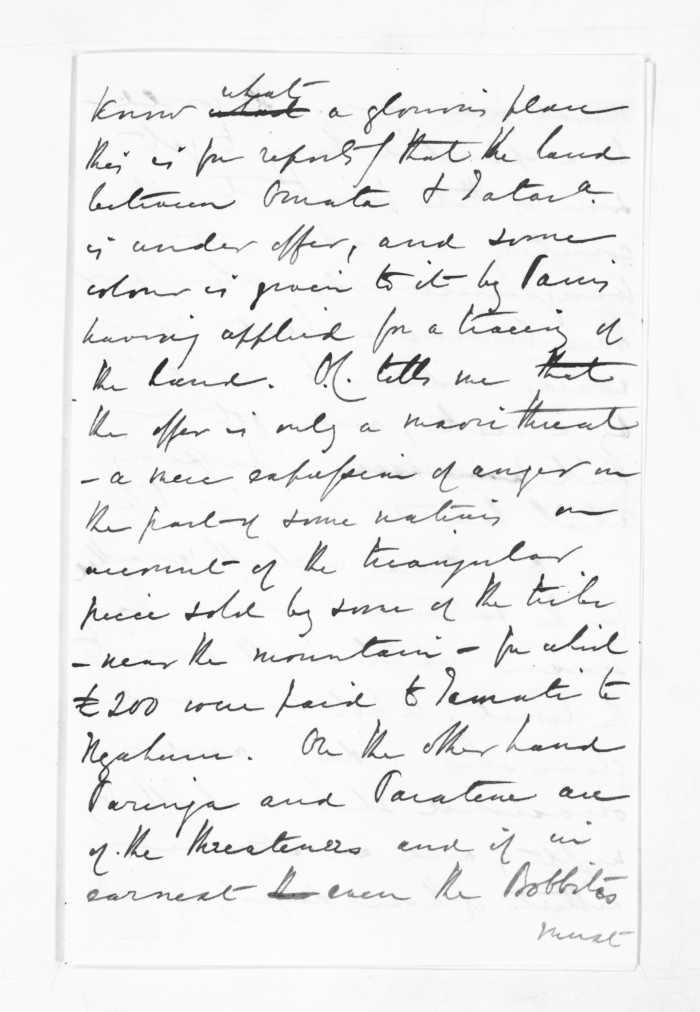 know what what a glorious place
this is for reports/ that the land
between Omata & Tatara.
is under offer, and some
colour is given to it by Parris
having applied for a tracing of
the land. O.C. tells me that
the offer is only a maori threat
- a mere expression of anger on
the part of some natives on
account of the triangular
piece sold by some of the tribe
- near the mountain - for which
£200 were paid to Tamati te
Ngahuru. On the other hand
Taringa and Paratene are
of the threateners and if in
earnest the even the Bobbites
must